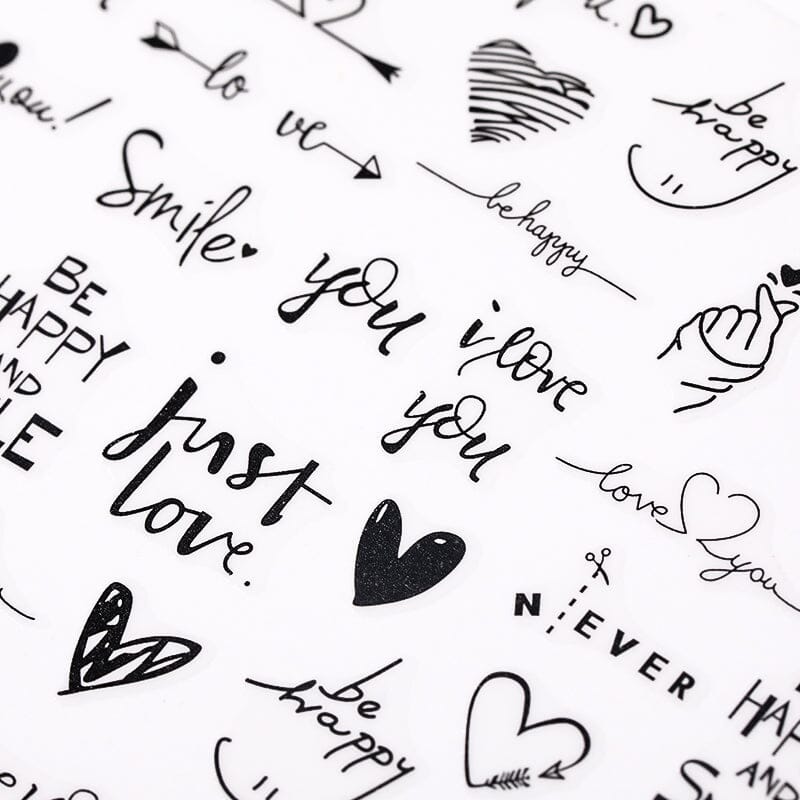 you!
lo
ve
be
happy
Smile
behappy
BE
HAPPY
AND
you
i love
you
just
love.
love you
N EVER
be
happy
AND